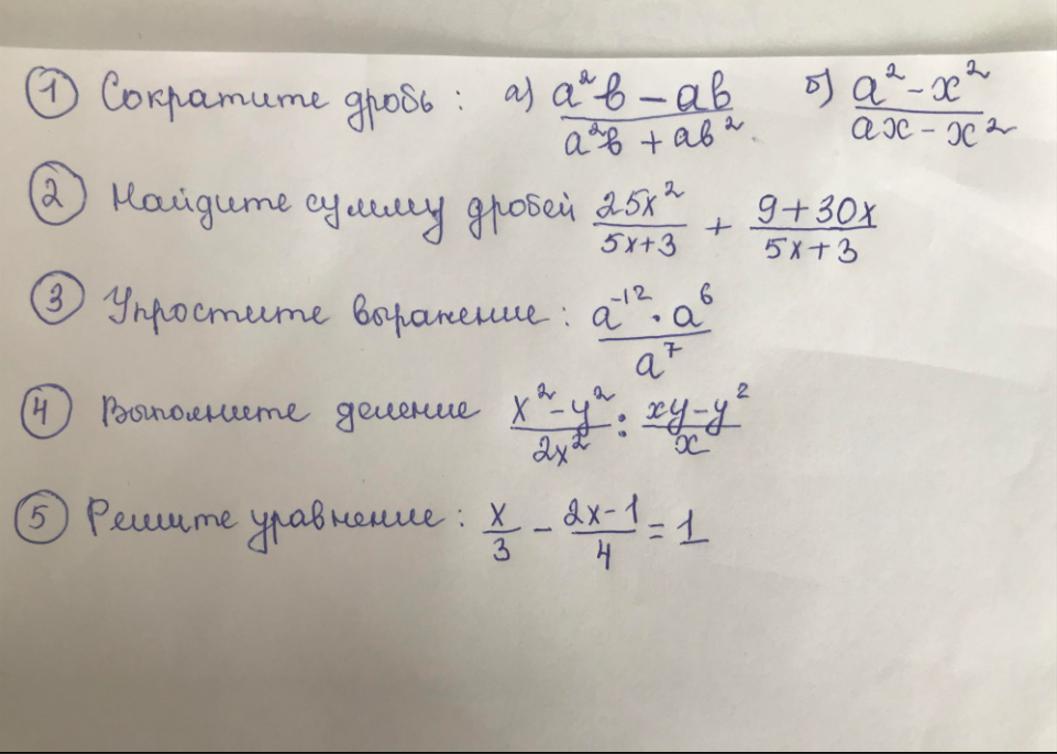 ① Сократите дробь: а) (a²b - ab)/(a²b + ab²) б) (a² - x²)/(ax - x²)
② Найдите сумму дробей 25x²/(5x+3) + (9+30x)/(5x+3)
③ Упростите выражение: (a⁻¹² · a⁶)/a⁷
④ Выполните деление (x² - y²)/(2x²) : (xy - y²)/x
⑤ Решите уравнение: x/3 - (2x-1)/4 = 1